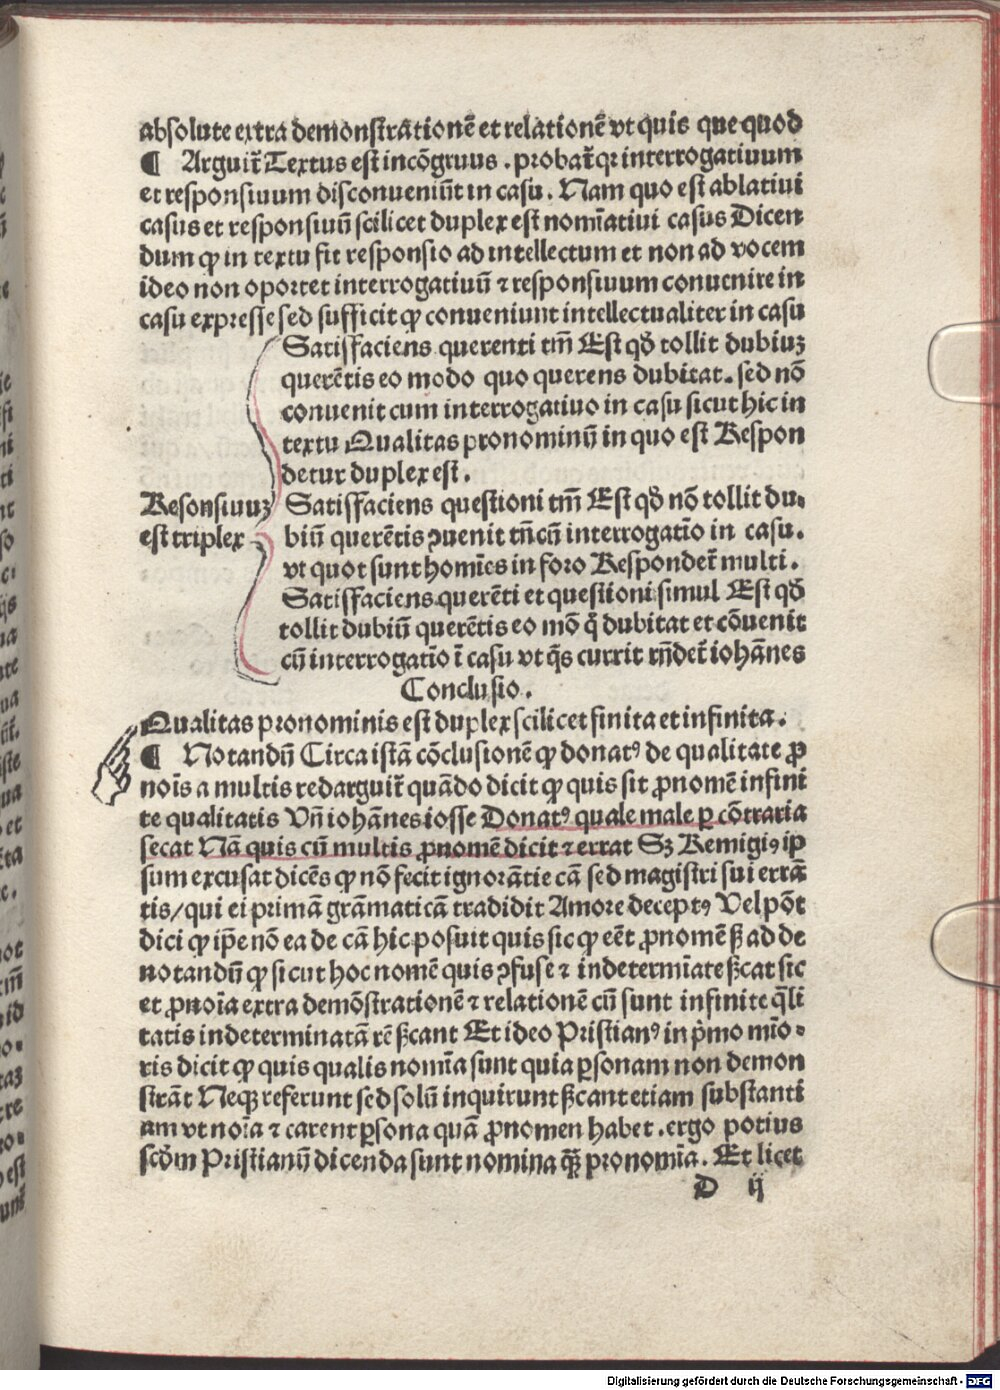 absolute extra demonstrationē et relationē vt quis que quod
¶ Arguit᷑ Textus est incōgruus . probat᷑ qꝛ interrogatiuum
et responsiuum disconueniūt in casu . Nam quo est ablatiui
casus et responsiuū scilicet duplex est nomīatiui casus Dicen
dum ꝙ in textu fit responsio ad intellectum et non ad vocem
ideo non oportet interrogatiuū ⁊ responsiuum conuenire in
casu expresse sed sufficit ꝙ conueniunt intellectualiter in casu
Satisfaciens querenti tm̄ Est qd̄ tollit dubiuꝫ
querētis eo modo quo querens dubitat . sed nō
conuenit cum interrogatiuo in casu sicut hic in
textu Qualitas pronominū in quo est Respon
detur duplex est .
Resonsiuuꝫ
est triplex
Satisfaciens questioni tm̄ Est qd̄ nō tollit du-
biū querētis ꝯuenit tn̄ cū interrogatīo in casu .
vt quot sunt homīes in foro Respondet᷑ multi .
Satisfaciens querēti et questioni simul Est qd̄
tollit dubiū querētis eo mō q̄ dubitat et cōuenit
cū interrogatīo ī casu vt q̄s currit rn̄det᷑ iohānes
Conclusio .
Qualitas pronominis est duplex scilicet finita et infinita .
¶ Notandū Circa istā cōclusionē ꝙ donatꝰ de qualitate ꝓ
noīs a multis redarguit᷑ quādo dicit ꝙ quis sit ꝓnomē infini
te qualitatis Vn̄ iohānes iosse Donatꝰ quale male ꝑ cōtraria
secat Nā quis cū multis ꝓnomē dicit ⁊ errat Sꝫ Remigiꝰ ip̄
sum excusat dicēs ꝙ nō fecit ignorātie cā sed magistri sui errā
tis / qui ei primā grāmaticā tradidit Amore deceptꝰ Vel pōt
dici ꝙ ip̄e nō ea de cā hic posuit quis sic ꝙ eēt ꝓnomē ß ad de
notandū ꝙ sicut hoc nomē quis ꝯfuse ⁊ indetermīate ßcat sic
et ꝓnoīa extra demōstrationē ⁊ relationē cū sunt infinite q̄li
tatis indeterminatā rē ßcant Et ideo Pristianꝰ in p̄mo mīo-
ris dicit ꝙ quis qualis nomīa sunt quia ꝑsonam non demon
strāt Neqꝫ referunt sed solū inquirunt ßcant etiam substanti
am vt noīa ⁊ carent ꝑsona quā ꝓnomen habet . ergo potius
scd̄m Pristianū dicenda sunt nomina q̄ꝫ pronomīa . Et licet
D ij
Digitalisierung gefördert durch die Deutsche Forschungsgemeinschaft - DFG